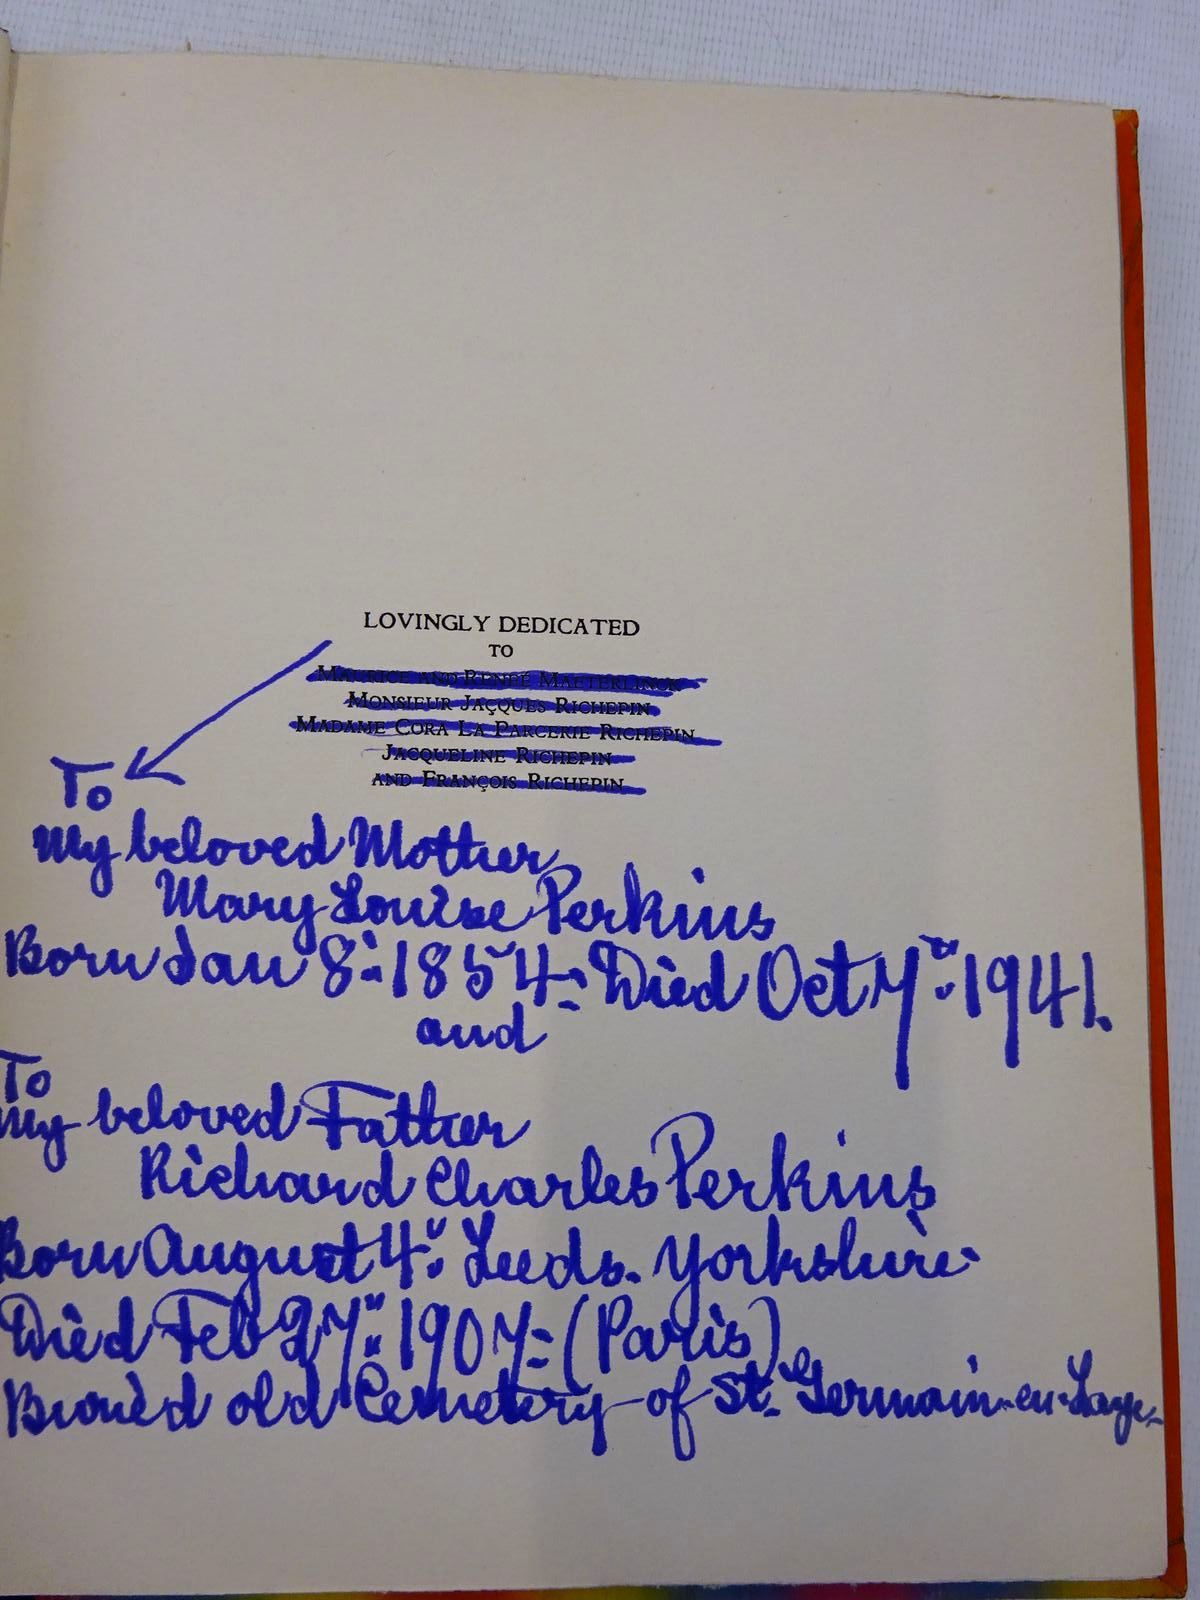 LOVINGLY DEDICATED
TO
MAURICE AND RENÉE MAETERLINCK
MONSIEUR JAÇQUES RICHEPIN
MADAME CORA LA PARCERIE RICHEPIN
JACQUELINE RICHEPIN
AND FRANÇOIS RICHEPIN
To
My beloved Mother
Mary Louise Perkins
Born Jan 8: 1854: Died Oct 7th: 1941.
and
To
My beloved Father
Richard Charles Perkins
Born August 4: Leeds. Yorkshire.
Died Feb 27": 1907: (Paris)
Buried old Cemetery of St. Germain-en-Laye.